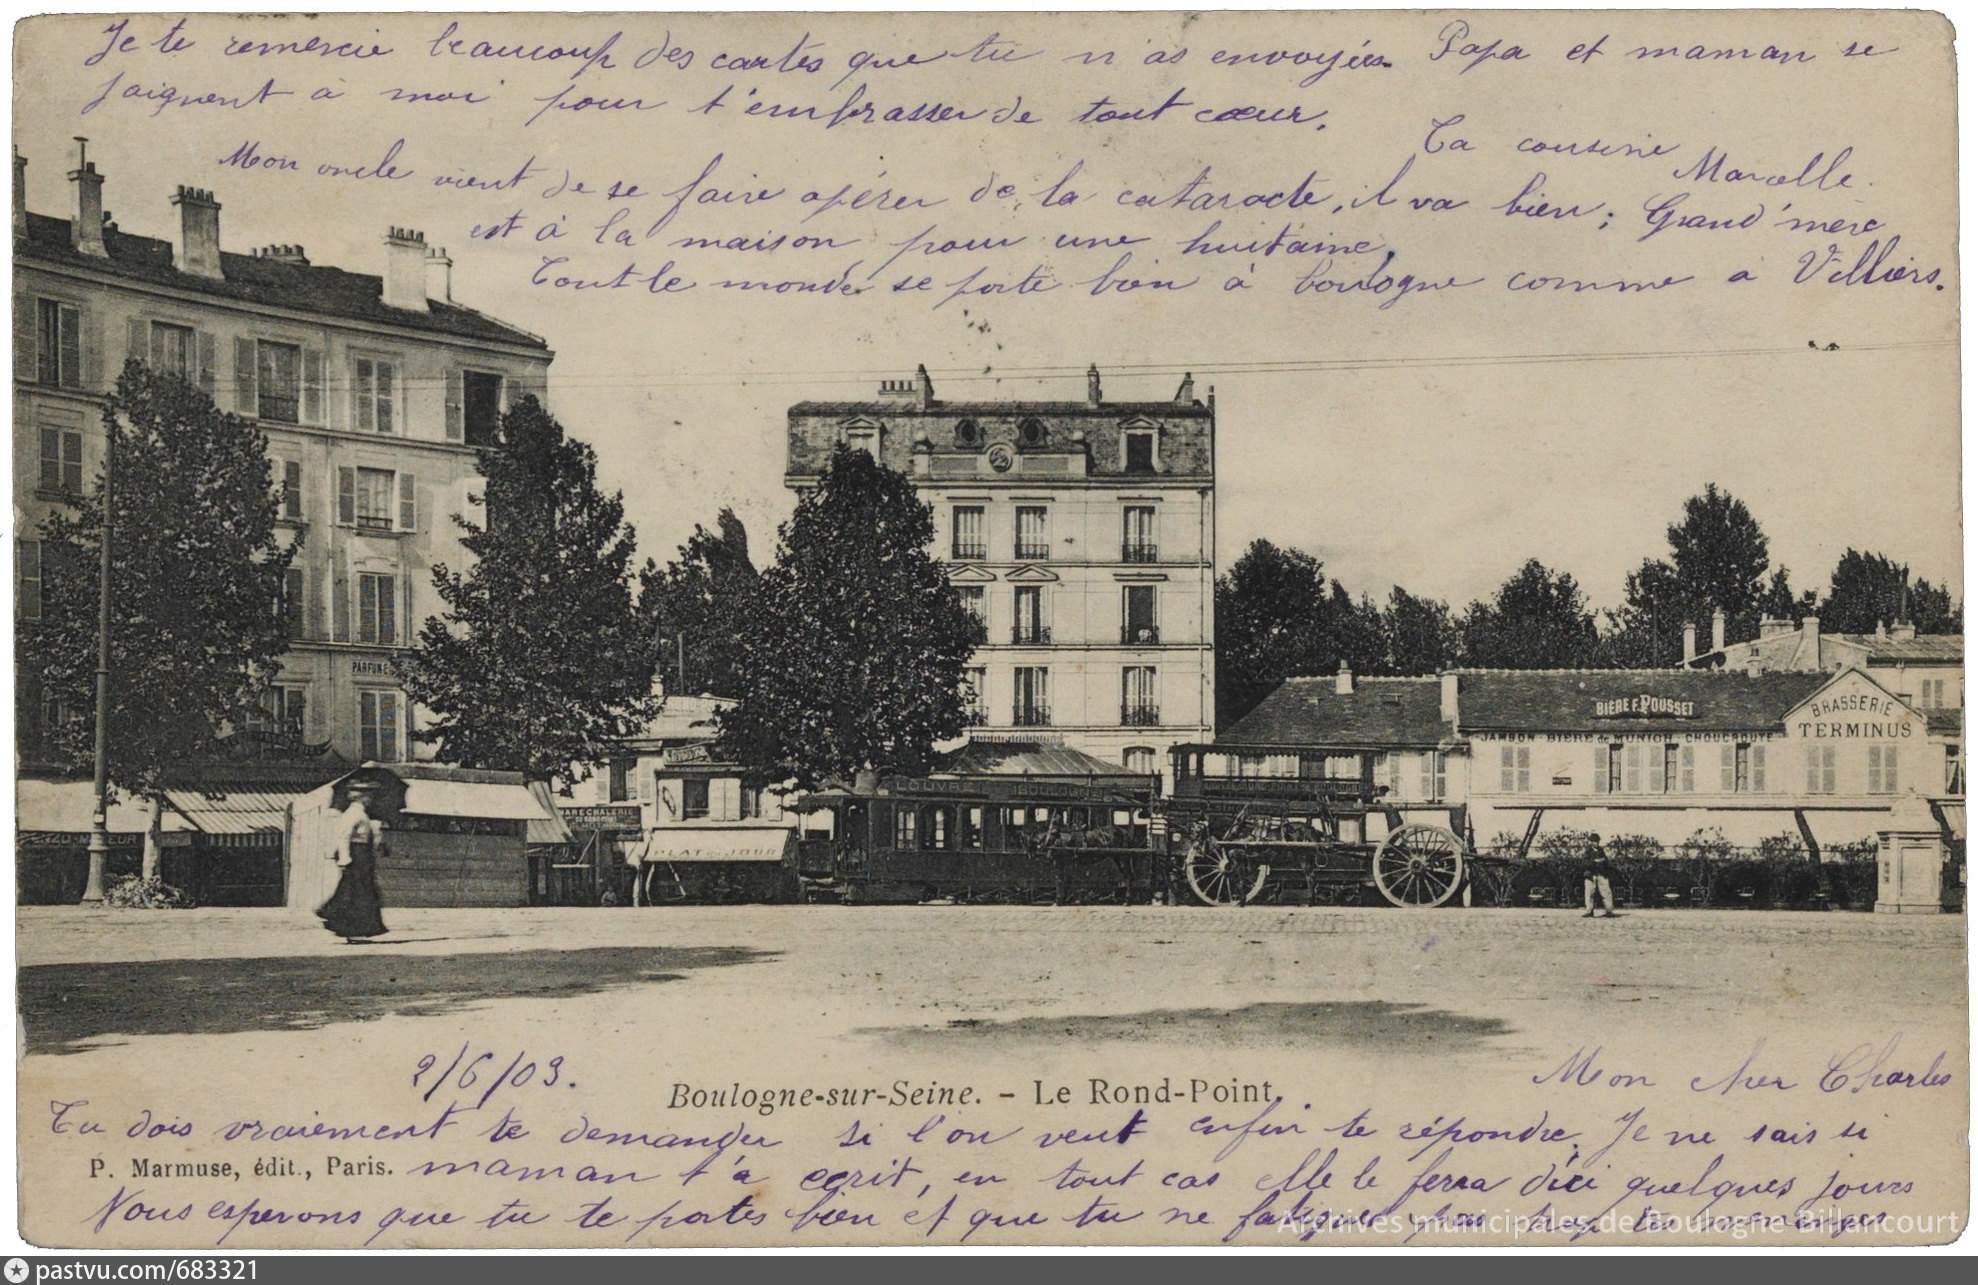 Je te remercie beaucoup des cartes que tu m'as envoyées. Papa et maman se
joignent à moi pour t'embrasser de tout cœur.
Ta cousine
Marcelle.
Mon oncle vient de se faire opérer de la cataracte, il va bien; Grand'mère
est à la maison pour une huitaine.
Tout le monde se porte bien à boulogne comme a Villiers.
PARFUME
BIÈRE F. POUSSET
BRASSERIE
TERMINUS
JAMBON BIÈRE de MUNICH CHOUCROUTE
LOUVRE BOULOGNE
MARECHALERIE
DU ROND-POINT
PLAT DU JOUR
2/6/03.
Boulogne-sur-Seine. - Le Rond-Point.
Mon cher Charles
Tu dois vraiement te demander si l'on veut enfin te répondre. Je ne sais si
P. Marmuse, édit., Paris.
maman t'a ecrit, en tout cas elle le fera d'ici quelques jours
Nous esperons que tu te portes bien et que tu ne fatigues pas trop tes
Archives municipales de Boulogne Billancourt
pastvu.com/683321